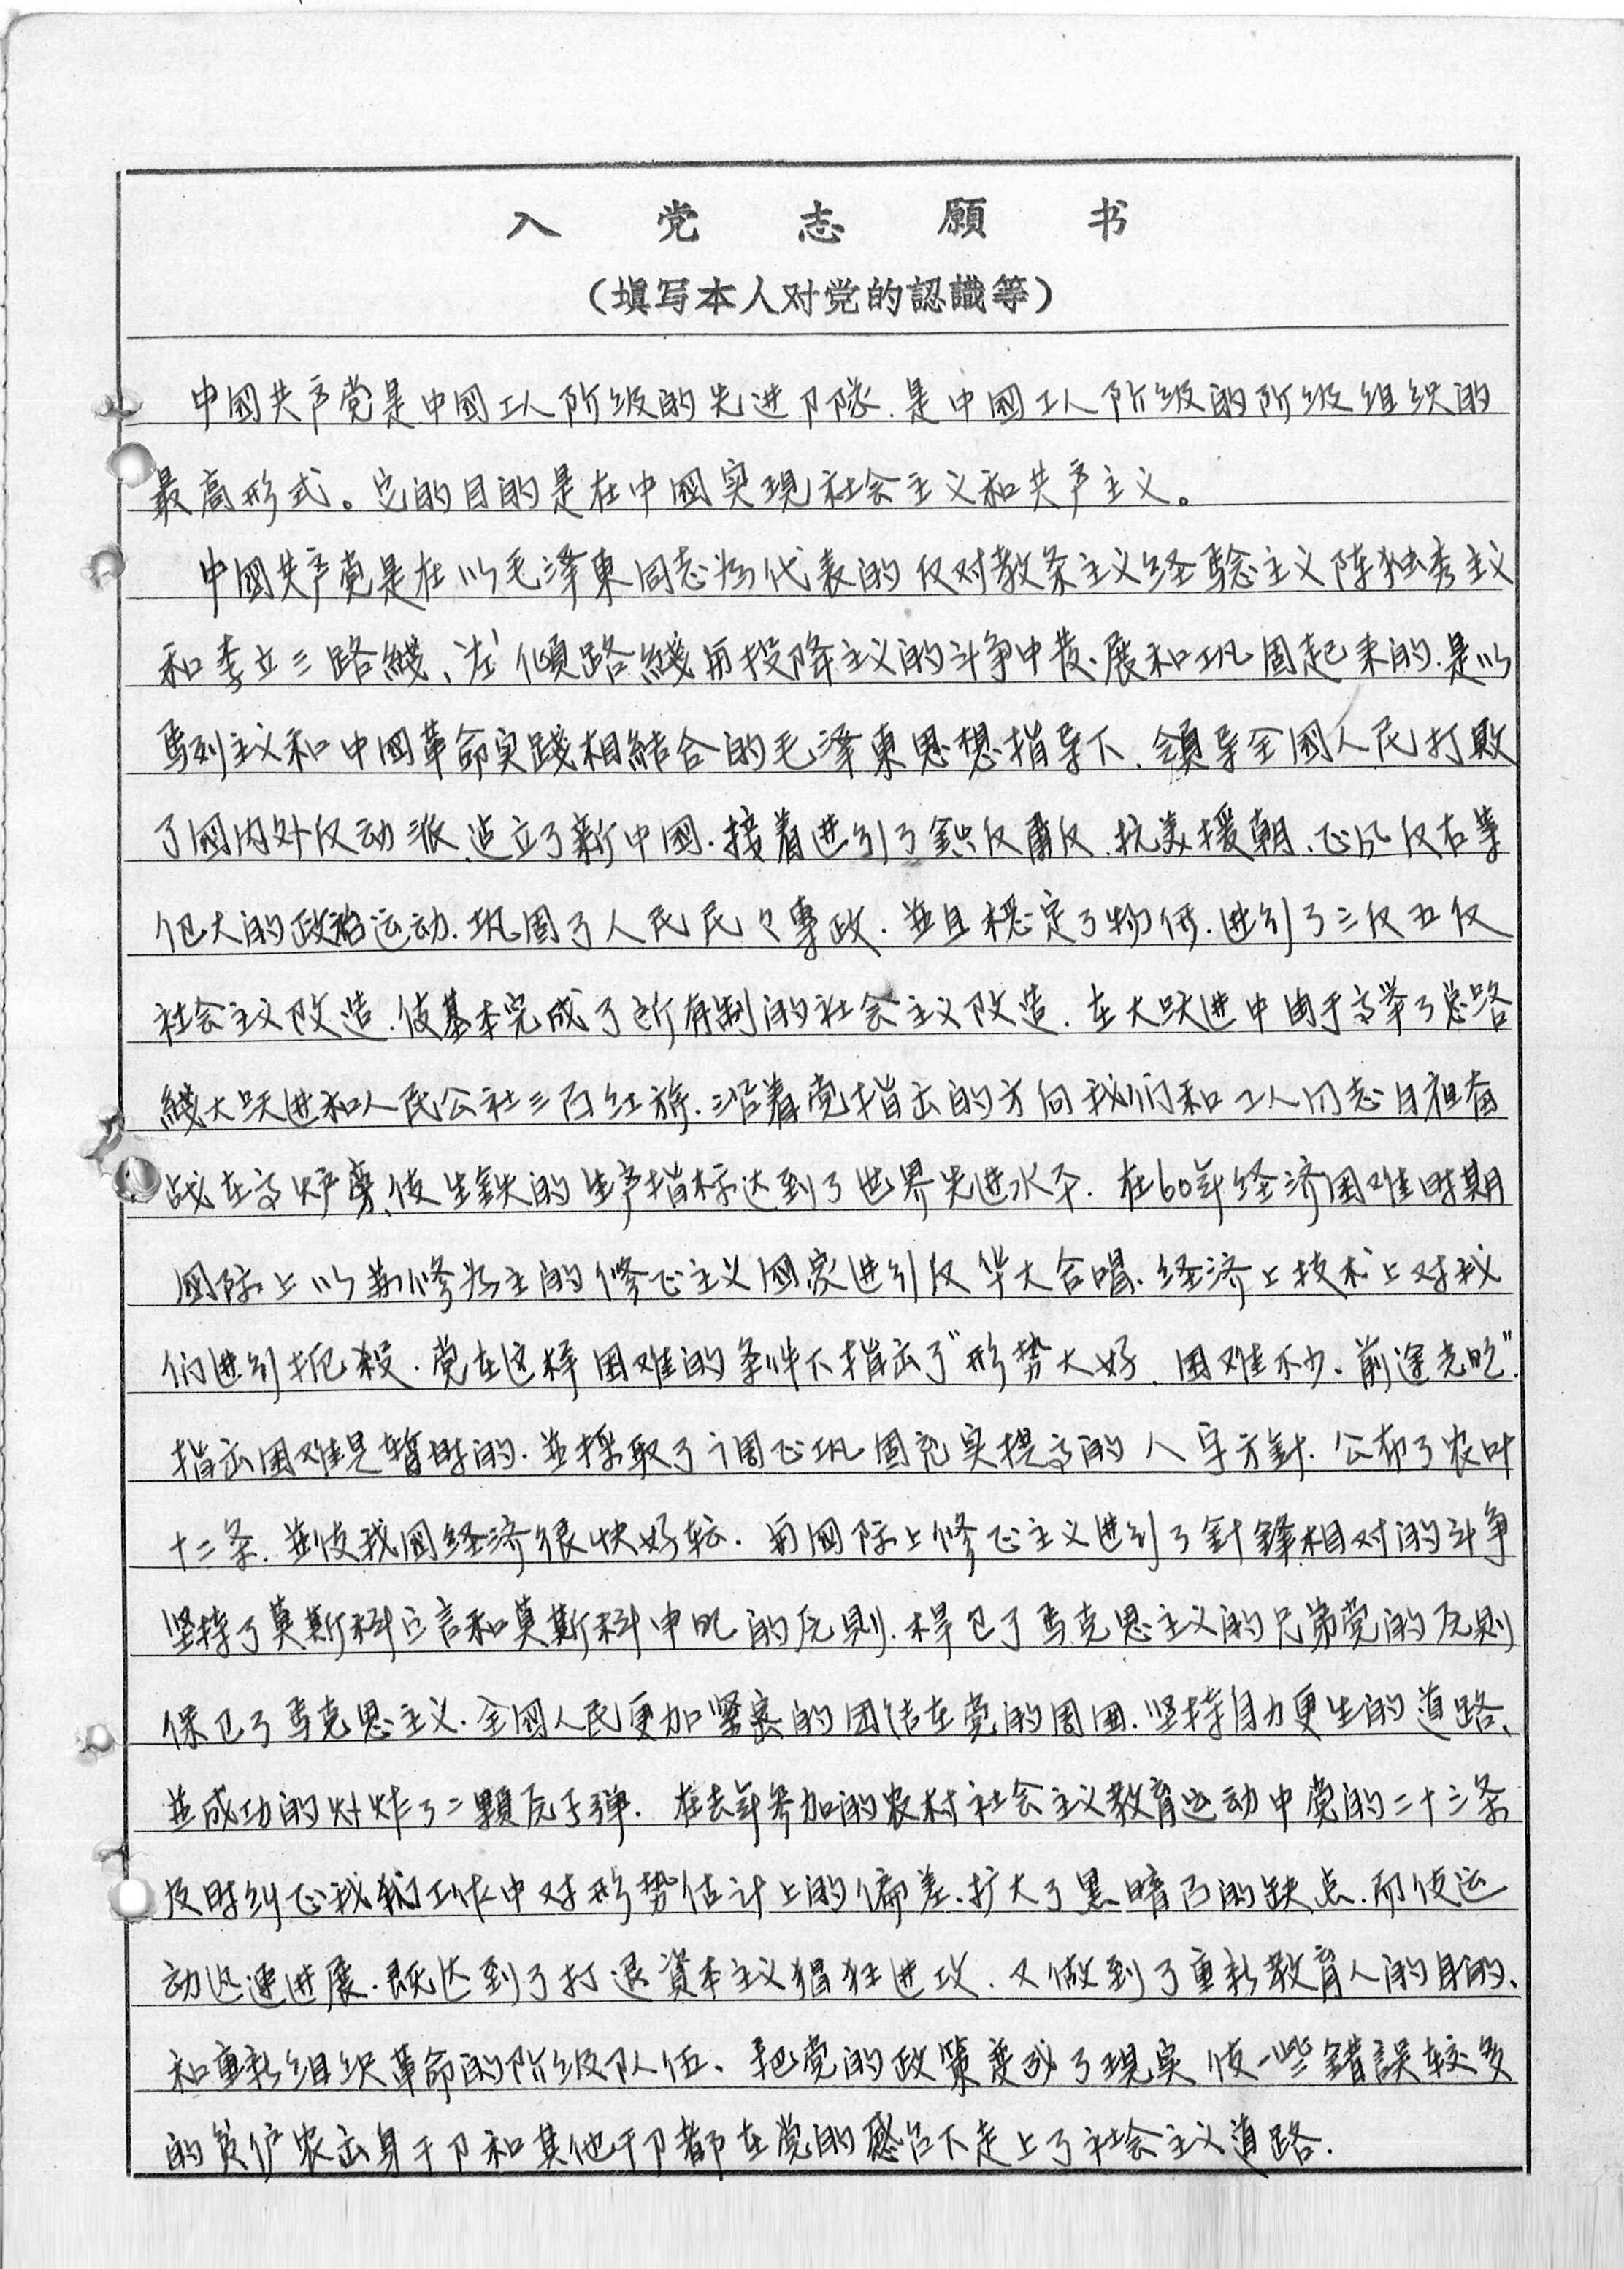 入党志願书
（填写本人对党的認識等）
中國共产党是中國工人阶级的先进卩隊.是中國工人阶级的阶级组织的
最高形式。它的目的是在中國实現社会主义和共产主义。
中國共产党是在以毛泽東同志为代表的反对教条主义经驗主义陈独秀主义
和李立三路綫、"左"傾路綫与投降主义的斗争中发展和巩固起来的.是以
馬列主义和中國革命实踐相結合的毛泽東思想指导下.領导全國人民打敗
了國内外反动派.建立了新中國.接着进行了鎮反肃反.抗美援朝.正风反右等
伟大的政治运动.巩固了人民民々專政.並且穩定了物价.进行了三反五反
社会主义改造.使基本完成了所有制的社会主义改造.在大跃进中由于高举了总路
綫大跃进和人民公社三面红旂.沿着党指出的方向我们和工人同志日夜奋
战在高炉旁.使生鉄的生产指标达到了世界先进水平.在60年经济困难时期
國际上以苏修为主的修正主义國家进行反华大合唱.经济上技术上对我
们进行扼殺.党在这样困难的条件下指出了"形势大好.困难不少.前途光明".
指出困难是暫时的.並採取了调正巩固充实提高的八字方針.公布了农叶
十二条.並使我國经济很快好轉.与國际上修正主义进行了針鋒相对的斗争
坚持了莫斯科宣言和莫斯科申明的原則.捍卫了馬克思主义的兄弟党的原則
保卫了馬克思主义.全國人民更加緊密的团结在党的周围.坚持自力更生的道路、
並成功的爆炸了二顆原子弹.在去年参加的农村社会主义教育运动中党的二十三条
及时纠正我们工作中对形势估计上的偏差.扩大了黑暗面的缺点.而使运
动迅速进展.既达到了打退資本主义猖狂进攻.又做到了重新教育人的目的、
和重新组织革命的阶级队伍、把党的政策变成了現实 使一些錯誤较多
的贫伫农出身干卩和其他干卩都在党的感召下走上了社会主义道路.